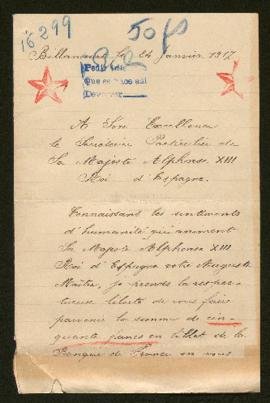 16299
50 f
22
Bellancourt, le 24 janvier 1917
Pedir
Devolver
A Son Excellence
le Secrétaire Particulier de
Sa Majesté Alphonse XIII
Roi d'Espagne.
Connaissant les sentiments
d'humanité qui animent
Sa Majesté Alphonse XIII
Roi d'Espagne votre Auguste
Maître, je prends la respec-
tueuse liberté de vous faire
parvenir la somme de cin-
quante francs en billet de la
Banque de France en vous